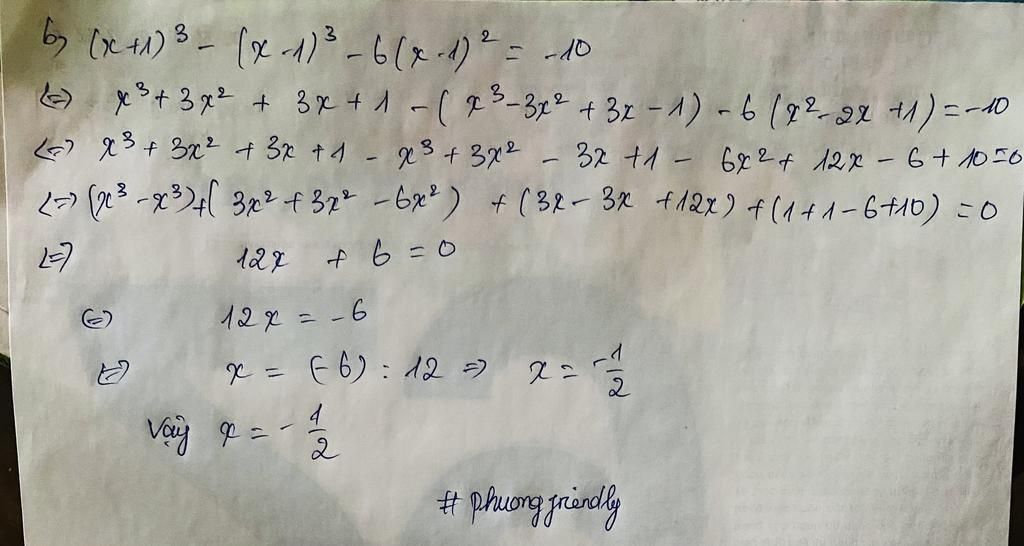 b, (x+1)³ - (x-1)³ - 6(x-1)² = -10
(=) x³ + 3x² + 3x + 1 - (x³ - 3x² + 3x - 1) - 6(x² - 2x + 1) = -10
(=) x³ + 3x² + 3x + 1 - x³ + 3x² - 3x + 1 - 6x² + 12x - 6 + 10 = 0
(=) (x³ - x³) + (3x² + 3x² - 6x²) + (3x - 3x + 12x) + (1 + 1 - 6 + 10) = 0
(=) 12x + 6 = 0
(=) 12x = -6
(=) x = (-6) : 12 => x = -1/2
Vậy x = -1/2
# phuongfriendly